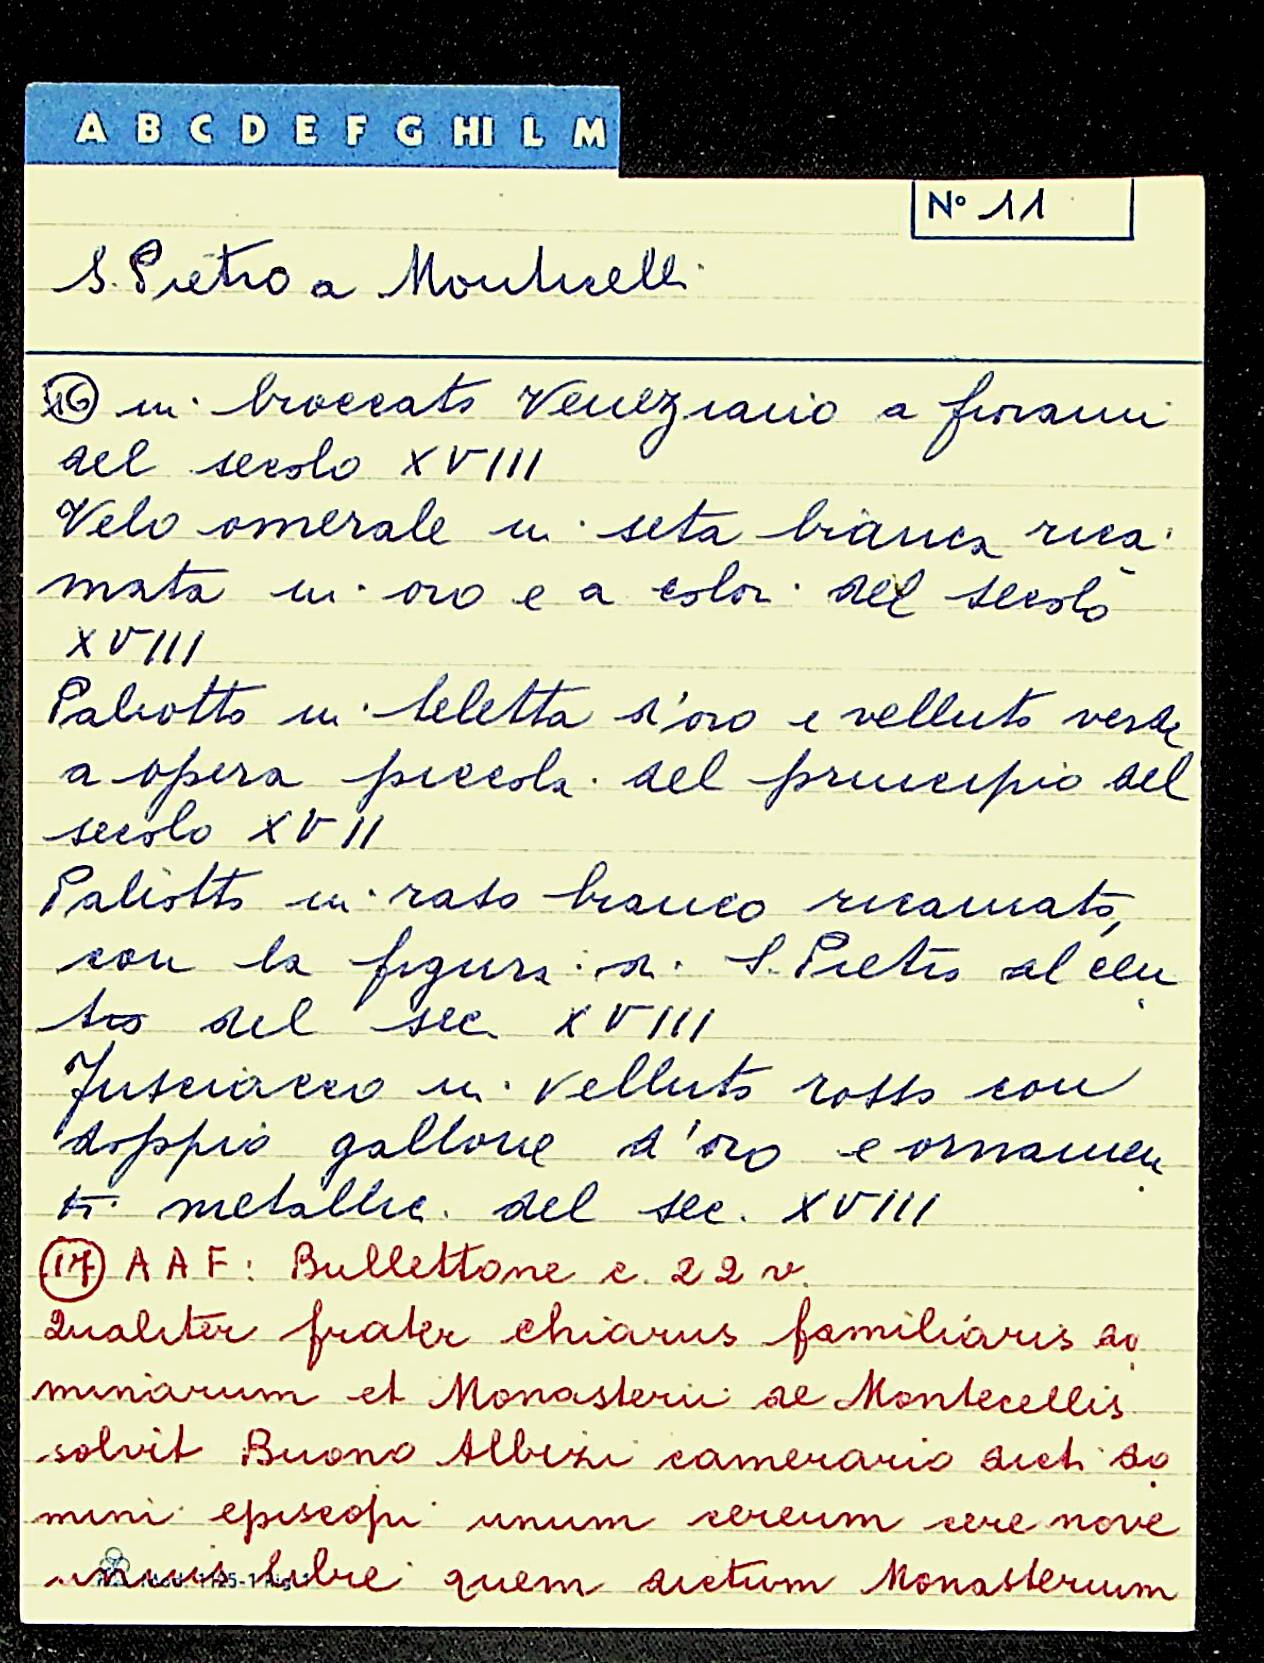 A B C D E F G HI L M
N° 11
S. Pietro a Monticelli
16 in broccato Veneziano a fiorami
del secolo XVIII
Velo omerale in seta bianca rica
mata in oro e a colori del secolo
XVIII
Paliotto in teletta d'oro e velluto verde
a opera piccola del principio del
secolo XVII
Paliotto in raso bianco ricamato,
con la figura di S. Pietro al cen
tro del sec XVIII
Fusciacco in velluto rosso con
doppio gallone d'oro e ornamen
ti metallici del sec. XVIII
17 A A F: Bullettone c. 22 v.
Qualiter frater Chiarus familiaris do
minarum et Monasterii de Montecellis
solvit Buono Albizi camerario dicti do
mini episcopi unum cereum cere nove
unius libre quem dictum Monasterium